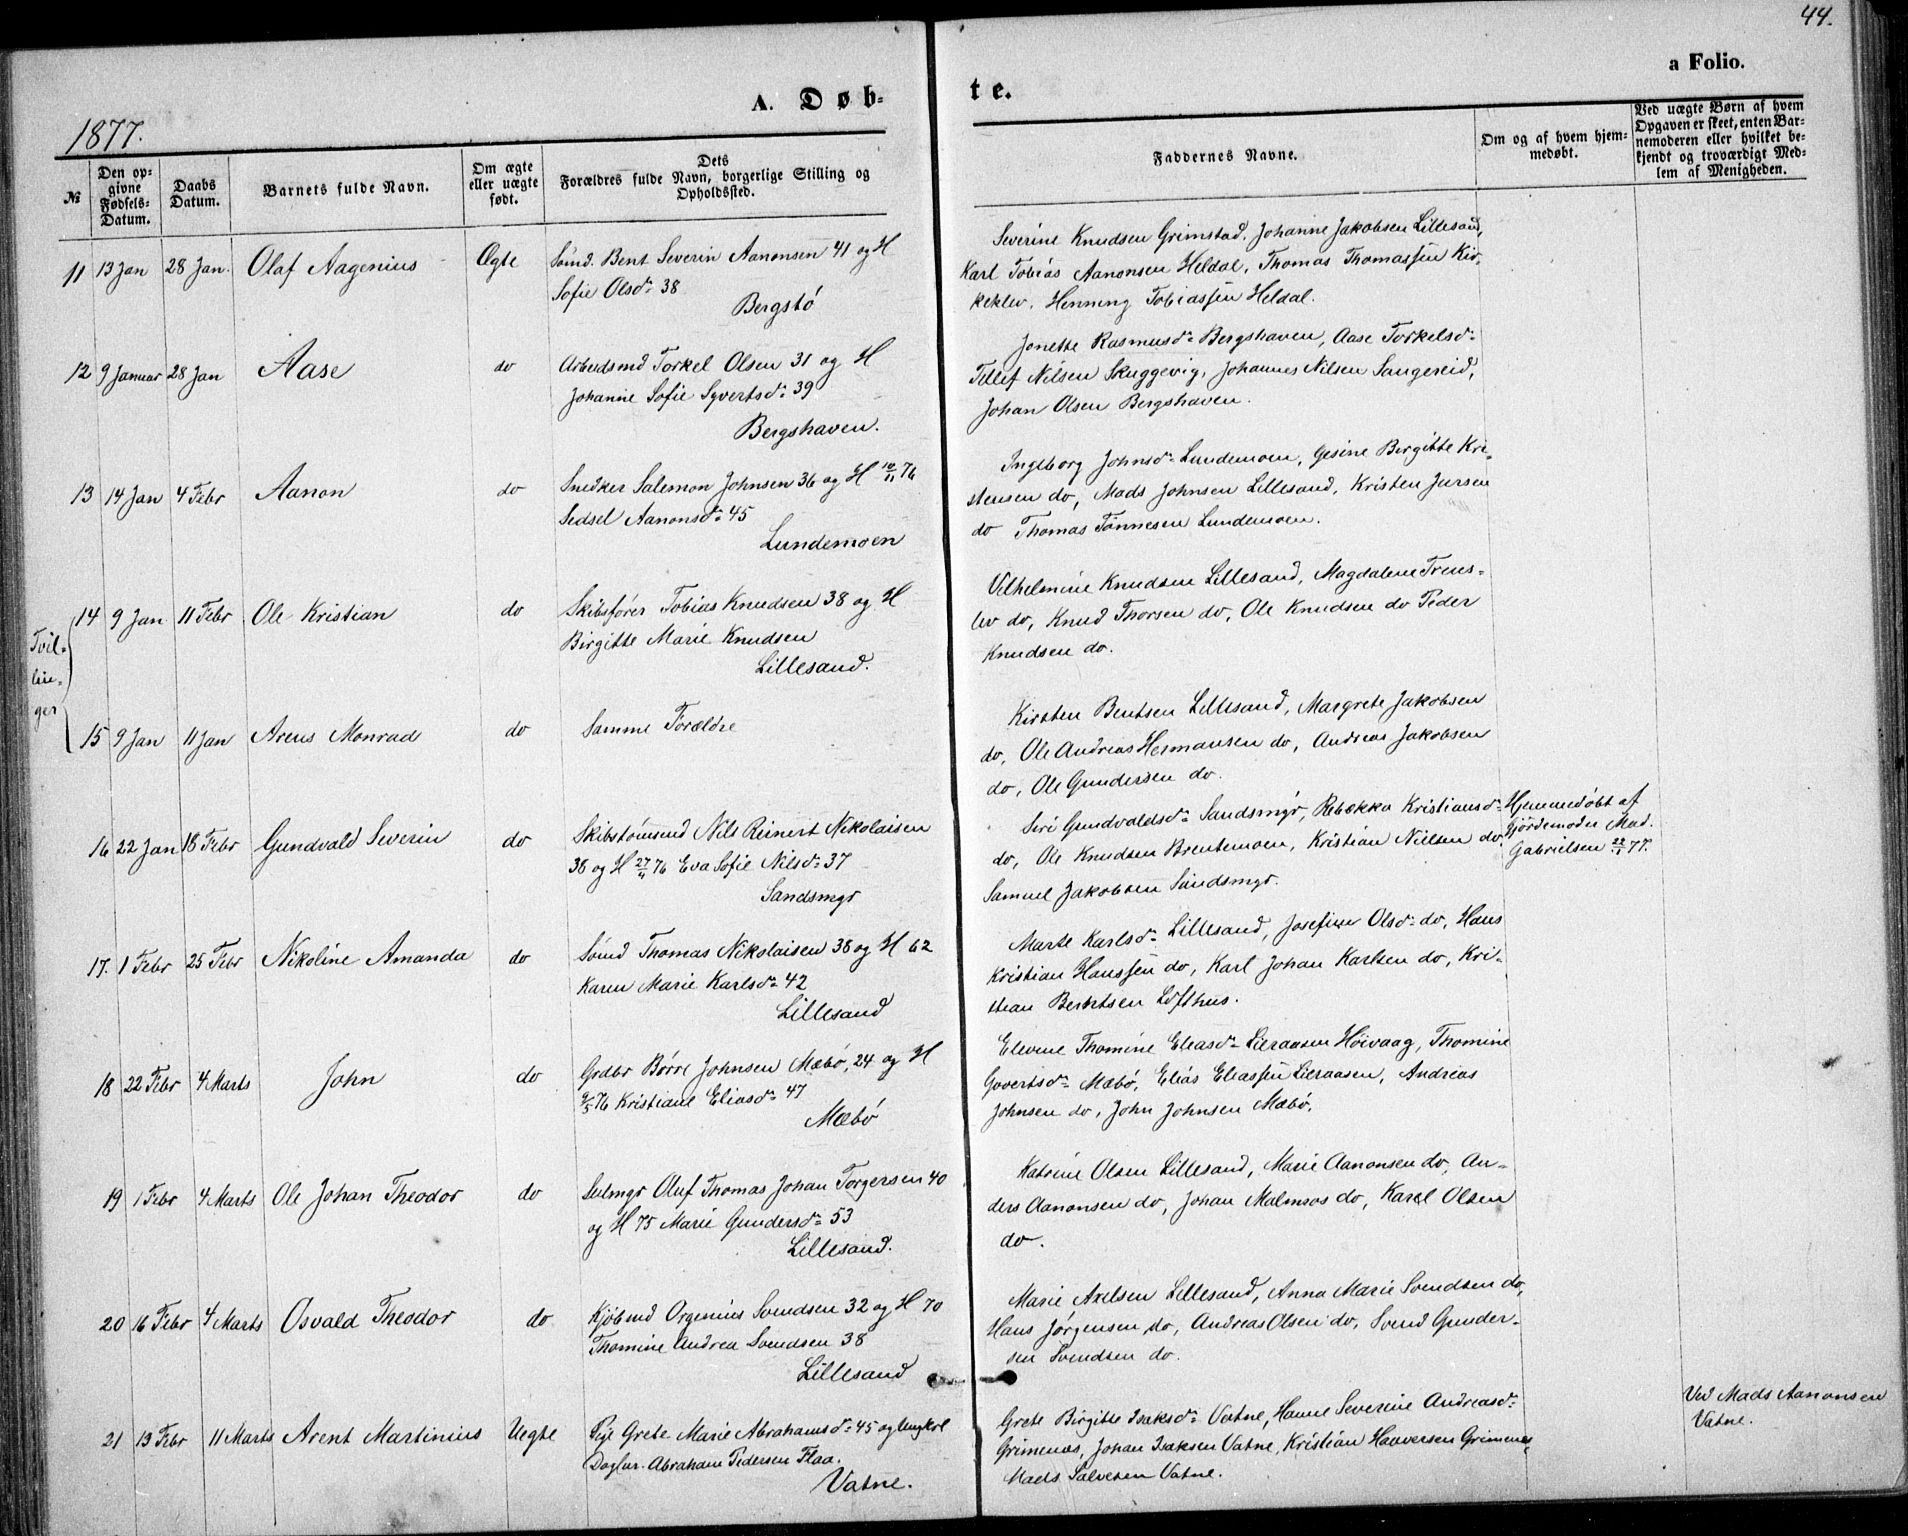 44.
a Folio.
A. Døb-
te.
1877.
№
Den op-
givne
Fødsels-
Datum.
Daabs
Datum.
Barnets fulde Navn.
Om ægte
eller uægte
født.
Dets
Forældres fulde Navn, borgerlige Stilling og
Opholdssted.
Faddernes Navne.
Om og af hvem hjem-
medøbt.
Ved uægte Børn af hvem
Opgaven er skeet, enten Bar-
nemoderen eller hvilket be-
kjendt og troværdigt Med-
lem af Menigheden.
11 13 Jan 28 Jan. Olaf Aagenius Ægte Sømd. Bent Severin Aanonsen 41 og H
Sofie Olsd. 38
Bergstø
Severine Knudsen Grimstad. Johanne Jakobsen Lillesand,
Karl Tobias Aanonsen Heldal, Thomas Thomassen Kir-
keklev, Henning Tobiassen Heldal.
12 9 Januar 28 Jan Aase do Arbeidsmd Torkel Olsen 31 og H
Johanne Sofie Syvertsd. 39
Bergshaven.
Jonette Rasmusd. Bergshaven, Aase Torkelsd.
Tellef Nilsen Skuggevig, Johannes Nilsen Sangereid,
Johan Olsen Bergshaven.
13 14 Jan 4 Febr Aanon do Snedker Salemon Johnsen 36 og H 10/11 76
Sidsel Aanonsd. 45
Lundemoen
Ingeborg Johnsd. Lundemoen, Gesine Birgitte Kri-
stensen do, Mads Johnsen Lillesand, Kristen Jensen
do Thomas Tønnesen Lundemoen.
Tvil-
lin-
ger
14 9 Jan. 11 Febr Ole Kristian do Skibsfører Tobias Knudsen 38 og H
Birgitte Marie Knudsen
Lillesand.
Vilhelmine Knudsen Lillesand, Magdalene Treus-
lev do, Knud Thorsen do, Ole Knudsen do Peder
Knudsen do.
15 9 Jan 11 Jan Arens Monrad do Samme Forældre
Kirsten Bentsen Lillesand, Margrete Jakobsen
do, Ole Andreas Hermansen do, Andreas Jakobsen
do, Ole Gundersen do.
16 22 Jan 18 Febr Gundvald Severin do Skibstømmd Nils Reinert Nikolaisen
38 og H 27/11 76 Eva Sofie Nilsd. 37
Sandsmyr
Siri Gundvaldsd. Sandsmyr, Rebekka Kristiansd.
do, Ole Knudsen Brentemoen, Kristian Nielsen do,
Samuel Jakobsen Sandsmyr.
Hjemmedøbt af
Gjordemoder Mad.
Gabrielsen 22/1 77.
17. 1 Febr 25 Febr Nikoline Amanda do Sømd Thomas Nikolaisen 38 og H 62
Karen Marie Karlsd. 42
Lillesand
Marte Karlsd. Lillesand, Josefine Olsd. do, Hans
Kristian Hanssen do, Karl Johan Karlsen do, Kri-
stian Berntsen Lofthus.
18 22 Febr 4 Marts John do Grdbr Børre Johnsen Mæbø, 24 og H
9/5 76 Kristiane Eliasd. 47
Mæbø
Elevine Thomine Eliasd. Lieraasen Høivaag, Thomine
Govertsd. Mæbø, Elias Eliassen Lieraasen, Andreas
Johnsen do, John Johnsen Mæbø.
19 1 Febr 4 Marts Ole Johan Theodor do Seilmgr Oluf Thomas Johan Torgersen 40
og H 75 Marie Gundersd. 53
Lillesand.
Katrine Olsen Lillesand, Marie Aanonsen do, An-
ders Aanonsen do, Johan Malmros do, Karel Olsen
do.
20 16 Febr 4 Marts Osvald Theodor do Kjøbmd Orgenius Svendsen 32 og H 70
Thomine Andrea Svendsen 38
Lillesand
Marie Axelsen Lillesand, Anna Marie Svendsen do,
Hans Jørgensen do, Andreas Olsen do, Svend Gunder-
sen Svendsen do.
21 13 Febr 11 Marts Arent Martinius Uegte Pige Grete Marie Abrahamsd. 45 og Ungkrl
Dagl. Abraham Pedersen Flaa.
Vatne.
Grete Birgitte Isaksd. Vatne, Hanne Severine Andreasd.
Grimenes, Johan Isaksen Vatne, Kristian Haaversen Grimenes,
Mads Salvesen Vatne.
Ved Mads Aanonsen
Vatne.